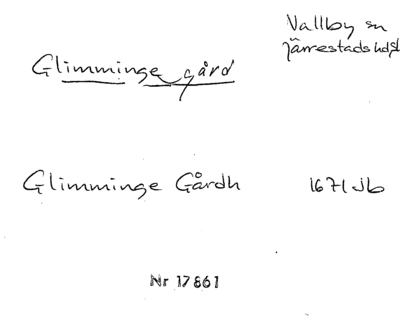 Vallby sn
Järrestads hd
Glimminge gård
Glimminge Gårdh 1671 Jb
Nr 17861